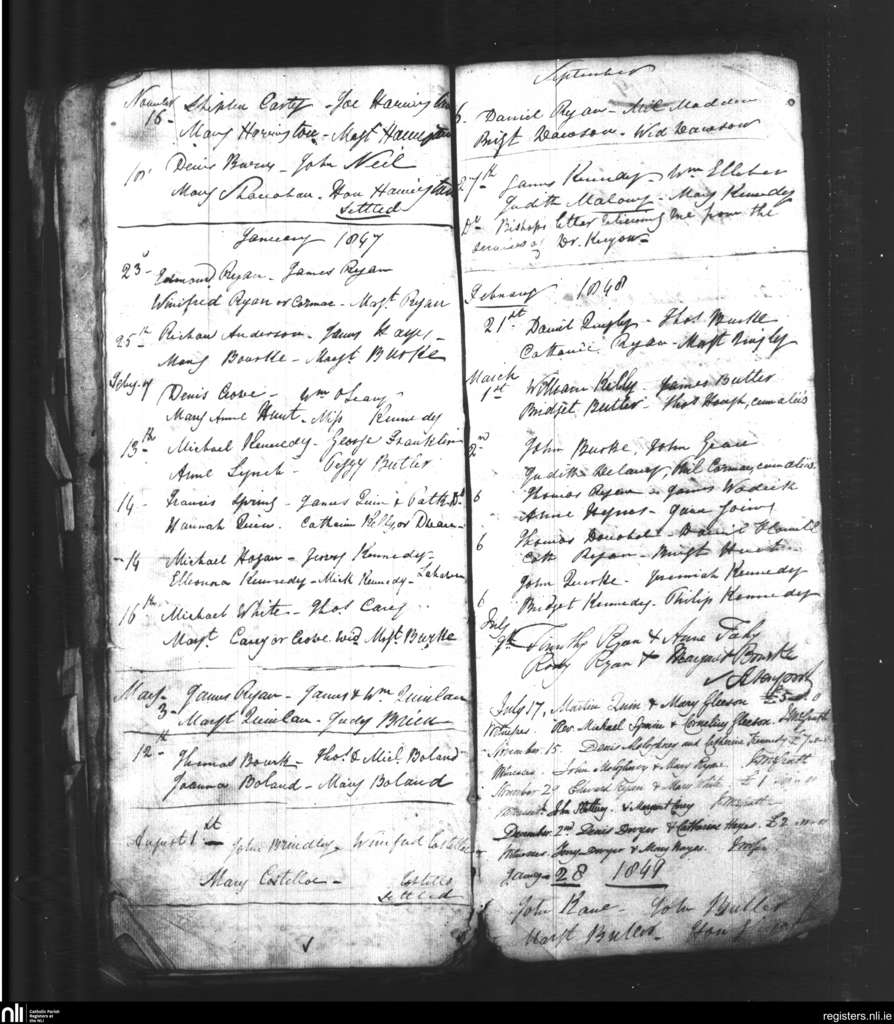 November Stephen Carty - Joe Harrington
16 - Mary Harrington - Margt Harrington
Denis Burns - John Neil
Mary Shanahan - Hon Harrington
Settled
January 1847
23d - Edmond Ryan - James Ryan
Winifred Ryan or Cormac - Margt. Ryan
25th Richard Anderson - James Hayes -
Mary Bourke - Margt Burke
Feby. 7 Denis Crowe - Wm O'Leary
Mary Anne Hunt - Miss Kennedy
13th - Michael Kennedy - George Franklin
Anne Lynch - Peggy Butler
14 - Francis Spring - James Quin & Patk Do
Hannah Quin - Catherin Kelly or Dwan -
14 Michael Hogan - Jerry Kennedy -
Elleonora Kennedy - Mick Kennedy -
16th Michael White - Thos Carey
Margt. Carey or Crowe - Wid Margt. Burke
May - James Ryan - James & Wm Quinlan
3 - Margt Quinlan - Judy Brien
12th - Thomas Bourk - Thos. & Micl. Boland
Joanna Boland - Mary Boland
August 1st - John Brindley - Winifred Costelloe
Mary Costelloe - Costello
Settled
September
6. Daniel Ryan - Madden
Bridgt Dawson - Wid Dawson
27th James Kennedy - Wm Elleher
Judith Malony - Mary Kennedy
Do Bishops letter relieving me from the
services of Dr. Kenyon -
February 1848
21st Daniel Quigley - Thos. Burke
Catherine Ryan - Margt Quigley
March 1st William Kelly - James Butler
Bridget Butler - Thos Hough, cum aliis
2nd John Burke, John
Judith Delany, Phil Cormac, cum aliis
6 Thomas Ryan - James
Anne Hynes - Jane
6 Thomas Donohoe - Daniel
Cath Ryan - Bridgt
John Burke - Jeremiah Kennedy
6 Bridget Kennedy - Philip Kennedy
July
9th Timothy Ryan & Anne Fahy
Rody Ryan & Margaret Bourke
July 17, Martin Quin & Mary Gleeson £5 " 0
Witnesses Rev. Michael Spain & Cornelius Gleeson
November 15. Denis Mologhney and Catherine Kennedy £7
Witnesses - John Mologhney & Mary Ryan.
November 29 Edward Ryan & Mary White £1
Witnesses John Slattery & Margaret Carey
December 2nd Denis Dwyer & Catherine Hayes. £2
Witnesses Jerry Dwyer & Mary Hayes.
Jany - 28 1849
John Kane - John Butler
Margt Butler - Hon
nli
Catholic Parish
Registers at
the NLI
registers.nli.ie